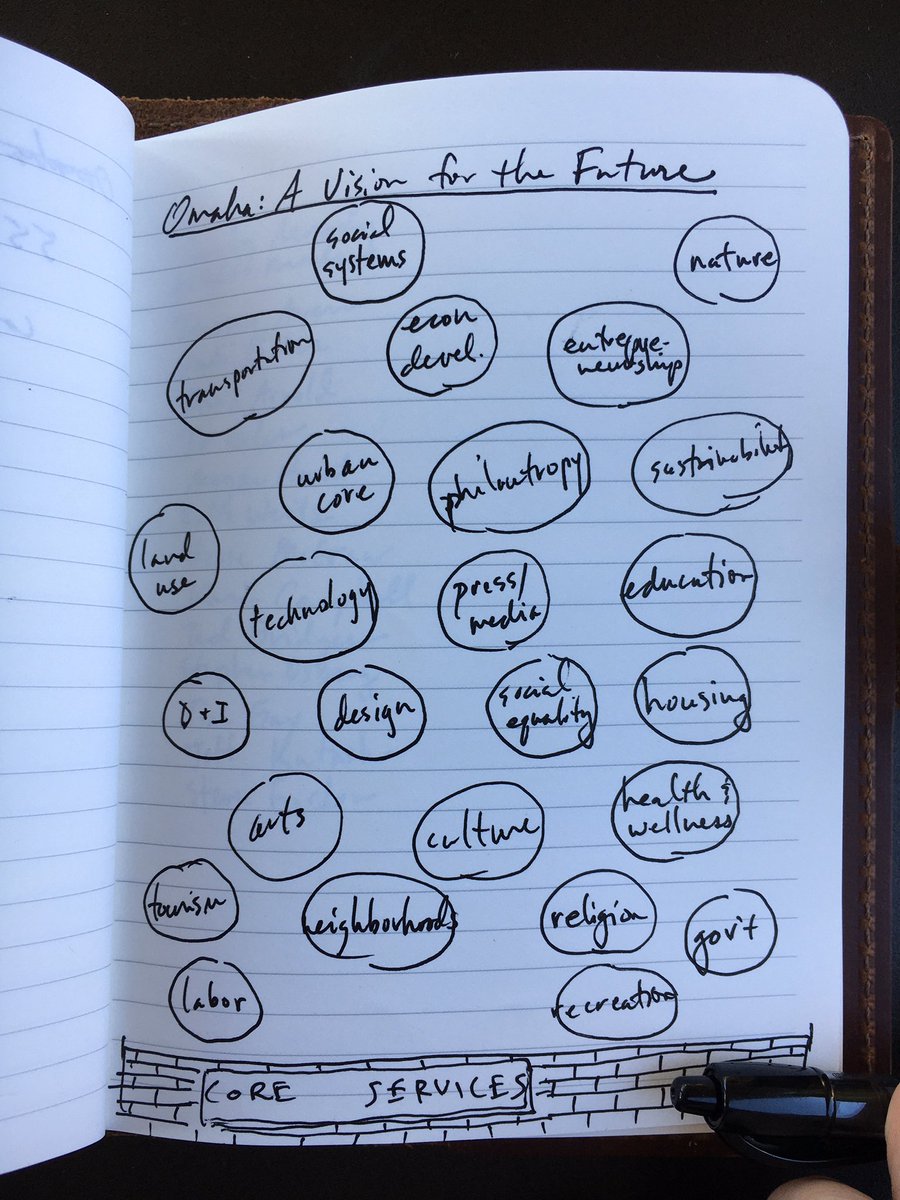 Omaha: A Vision for the Future
social
systems
nature
transportation
econ
devel.
entrepre-
neurship
urban
core
philantropy
sustainability
land
use
technology
press/
media
education
D + I
design
social
equality
housing
arts
culture
health &
wellness
tourism
neighborhoods
religion
gov't
labor
recreation
CORE SERVICES